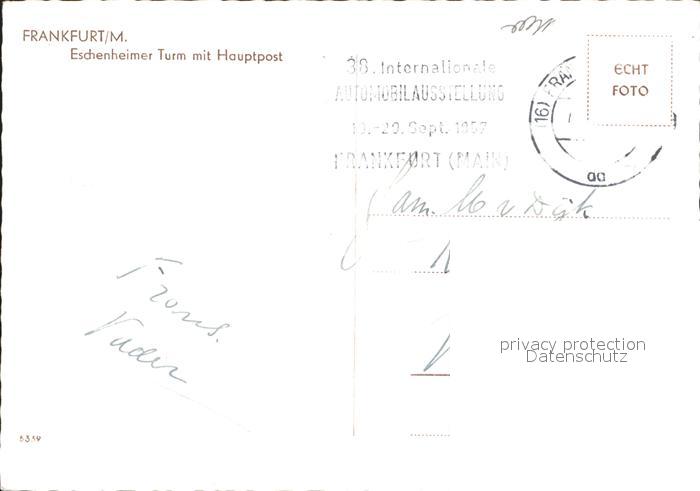 FRANKFURT/M.
Eschenheimer Turm mit Hauptpost
38. Internationale
AUTOMOBILAUSSTELLUNG
19.-29. Sept. 1957
FRANKFURT (MAIN)
(16) FRA
aa
ECHT
FOTO
Fam. v Dijk
Frans.
Vader
privacy protection
Datenschutz
5339